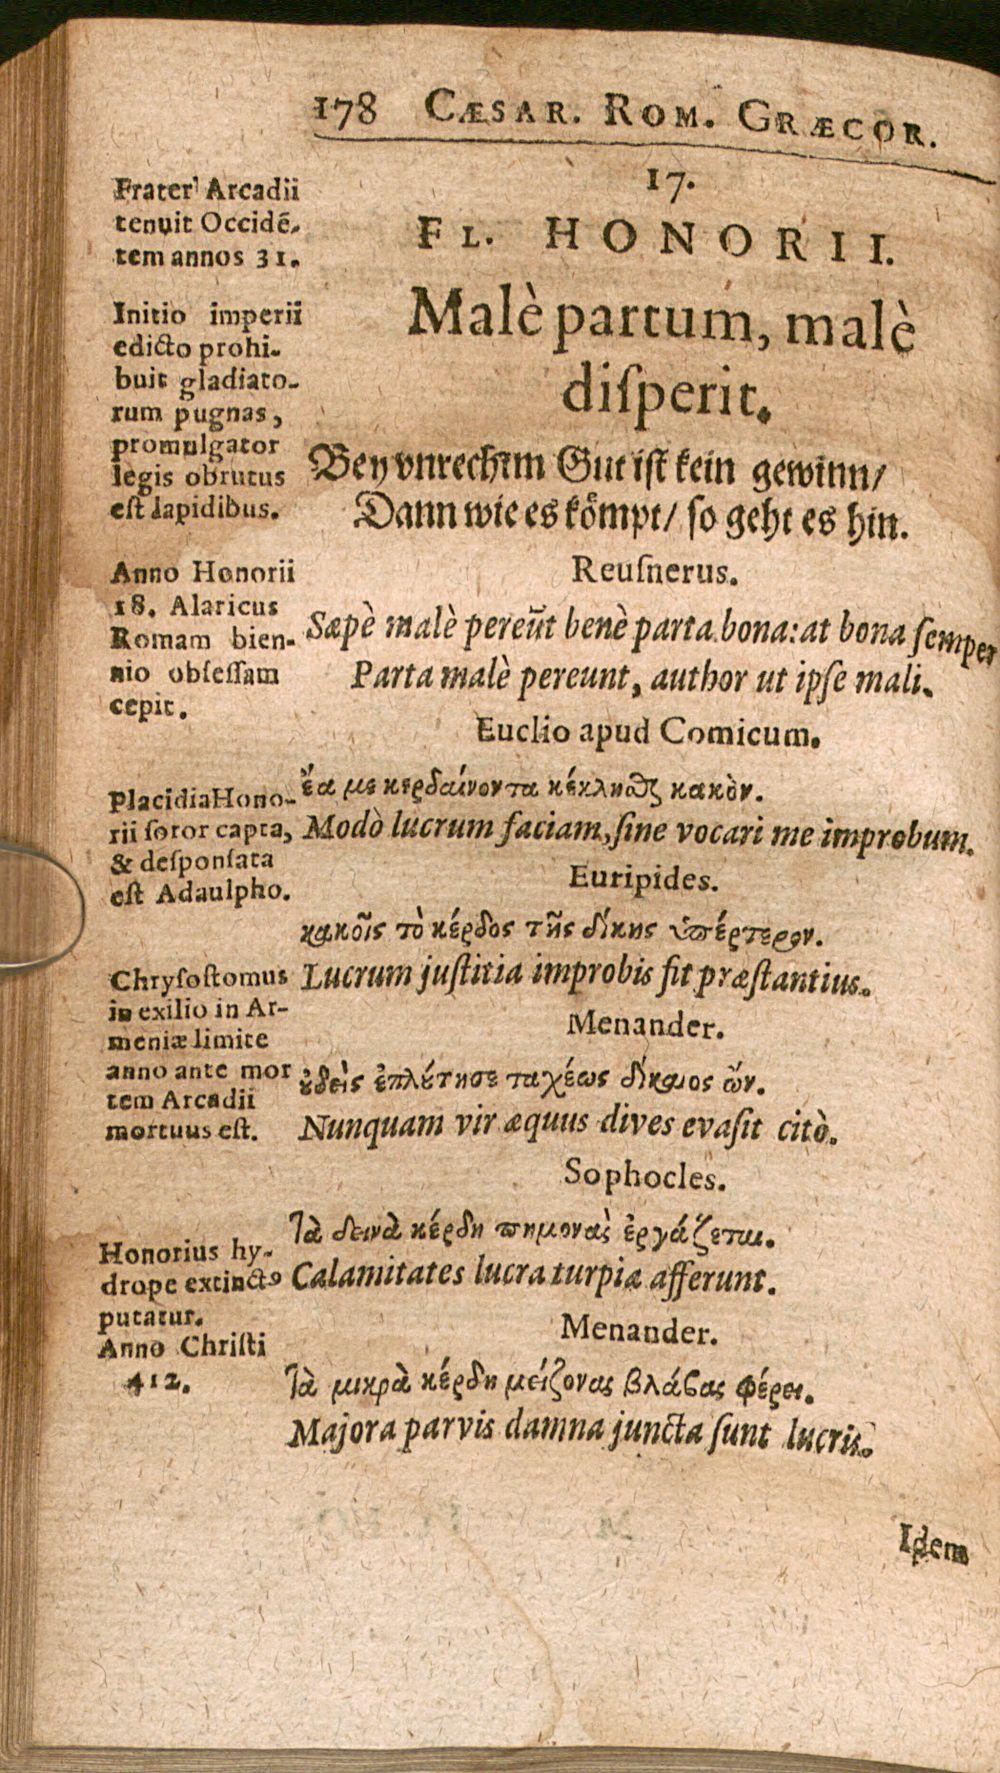 178 CÆSAR. ROM. GRÆCOR.
17.
FL. HONORII.
Malè partum, malè
diſperit.
Bey vnrechtm Gut iſt kein gewinn/
Dann wie es kömpt/ ſo geht es hin.
Reuſnerus.
Sæpè malè pereūt benè parta bona: at bona ſemper
Parta malè pereunt, author ut ipſe mali.
Euclio apud Comicum.
ἔα με κερδαίνοντα κέκληϑζ κακὸν.
Modò lucrum faciam, ſine vocari me improbum.
Euripides.
κακοῖς τὸ κέρδος τῆς δίκης ὑπέρτερον.
Lucrum juſtitia improbis fit præſtantius.
Menander.
ȣ̓δεὶς ἐπλȣ́τησε ταχέως δίκαιος ὤν.
Nunquam vir æquus dives evaſit citò.
Sophocles.
Τὰ δεινὰ κέρδη πημονὰς ἐργάζεται.
Calamitates lucra turpia afferunt.
Menander.
Τὰ μικρὰ κέρδη μείζονας βλάϐας φέρει.
Majora parvis damna juncta ſunt lucris.
Idem
Frater Arcadii
tenuit Occidē-
tem annos 31.
Initio imperii
edicto prohi-
buit gladiato-
rum pugnas,
promulgator
legis obrutus
eſt lapidibus.
Anno Honorii
18. Alaricus
Romam bien-
nio obſeſſam
cepit.
Placidia Hono-
rii ſoror capta,
& deſponſata
eſt Adaulpho.
Chryſoſtomus
in exilio in Ar-
meniæ limite
anno ante mor
tem Arcadii
mortuus eſt.
Honorius hy-
drope extinctꝰ
putatur.
Anno Chriſti
412.